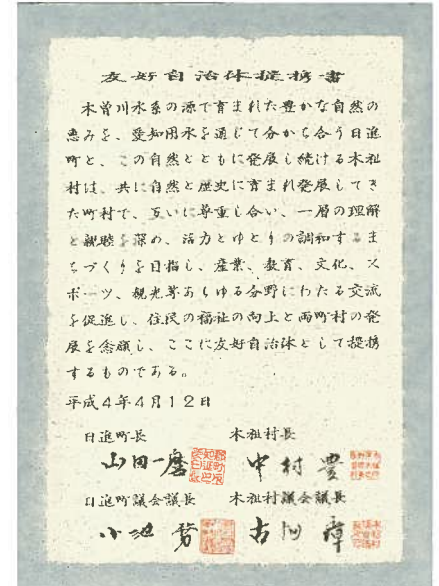 友好自治体提携書
木曽川水系の源で育まれた豊かな自然の
恵みを、愛知用水を通じて分かち合う日進
町と、この自然とともに発展し続ける木祖
村は、共に自然と歴史に育まれ発展してき
た町村で、互いに尊重し合い、一層の理解
と親睦を深め、活力とゆとりの調和するま
ちづくりを目指し、産業、教育、文化、ス
ポーツ、観光等あらゆる分野にわたる交流
を促進し、住民の福祉の向上と両町村の発
展を念願し、ここに友好自治体として提携
するものである。
平成4年4月12日
日進町長 木祖村長
山田一麿 中村豊
日進町議会議長 木祖村議会議長
小池 古